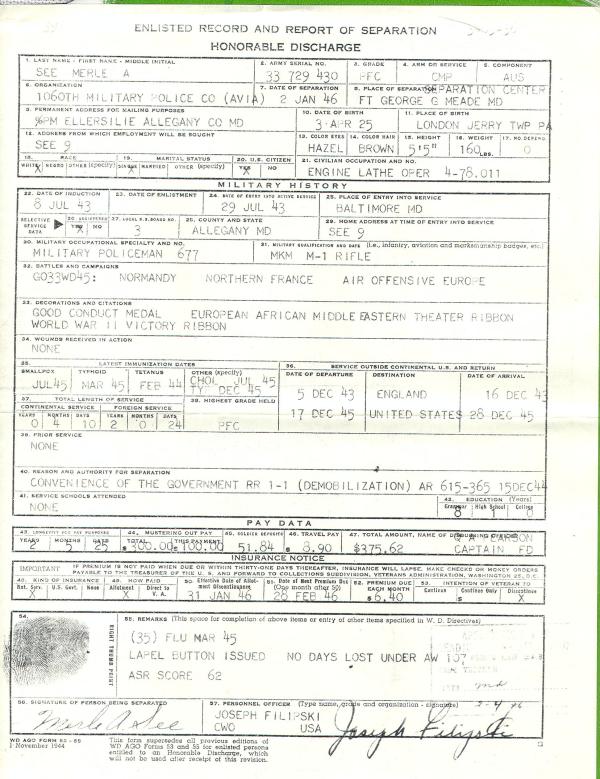 ENLISTED RECORD AND REPORT OF SEPARATION
HONORABLE DISCHARGE
1. LAST NAME - FIRST NAME - MIDDLE INITIAL 2. ARMY SERIAL NO. 3. GRADE 4. ARM OR SERVICE 5. COMPONENT
SEE MERLE A 33 729 430 PFC CMP AUS
6. ORGANIZATION 7. DATE OF SEPARATION 8. PLACE OF SEPARATION SEPARATION CENTER
1060TH MILITARY POLICE CO (AVIA) 2 JAN 46 FT GEORGE G MEADE MD
9. PERMANENT ADDRESS FOR MAILING PURPOSES 10. DATE OF BIRTH 11. PLACE OF BIRTH
%PM ELLERSILIE ALLEGANY CO MD 3 APR 25 LONDON JERRY TWP PA
12. ADDRESS FROM WHICH EMPLOYMENT WILL BE SOUGHT 13. COLOR EYES 14. COLOR HAIR 15. HEIGHT 16. WEIGHT 17. NO. DEPEND.
SEE 9 HAZEL BROWN 5'5" 160 LBS. 0
18. RACE 19. MARITAL STATUS 20. U.S. CITIZEN 21. CIVILIAN OCCUPATION AND NO.
WHITE NEGRO OTHER (specify) SINGLE MARRIED OTHER (specify) YES NO ENGINE LATHE OPER 4-78.011
X X X
MILITARY HISTORY
22. DATE OF INDUCTION 23. DATE OF ENLISTMENT 24. DATE OF ENTRY INTO ACTIVE SERVICE 25. PLACE OF ENTRY INTO SERVICE
8 JUL 43 29 JUL 43 BALTIMORE MD
SELECTIVE SERVICE DATA 26. REGISTERED YES NO 27. LOCAL S.S. BOARD NO. 28. COUNTY AND STATE 29. HOME ADDRESS AT TIME OF ENTRY INTO SERVICE
X 3 ALLEGANY MD SEE 9
30. MILITARY OCCUPATIONAL SPECIALTY AND NO. 31. MILITARY QUALIFICATION AND DATE (i.e., infantry, aviation and marksmanship badges, etc.)
MILITARY POLICEMAN 677 MKM M-1 RIFLE
32. BATTLES AND CAMPAIGNS
GO33WD45: NORMANDY NORTHERN FRANCE AIR OFFENSIVE EUROPE
33. DECORATIONS AND CITATIONS
GOOD CONDUCT MEDAL EUROPEAN AFRICAN MIDDLE EASTERN THEATER RIBBON
WORLD WAR II VICTORY RIBBON
34. WOUNDS RECEIVED IN ACTION
NONE
35. LATEST IMMUNIZATION DATES 36. SERVICE OUTSIDE CONTINENTAL U.S. AND RETURN
SMALLPOX TYPHOID TETANUS OTHER (specify) DATE OF DEPARTURE DESTINATION DATE OF ARRIVAL
JUL45 MAR 45 FEB 44 CHOL JUL 45 5 DEC 43 ENGLAND 16 DEC 43
TY DEC 45
37. TOTAL LENGTH OF SERVICE 38. HIGHEST GRADE HELD
CONTINENTAL SERVICE FOREIGN SERVICE 17 DEC 45 UNITED STATES 28 DEC 45
YEARS MONTHS DAYS YEARS MONTHS DAYS
0 4 10 2 0 24 PFC
39. PRIOR SERVICE
NONE
40. REASON AND AUTHORITY FOR SEPARATION
CONVENIENCE OF THE GOVERNMENT RR 1-1 (DEMOBILIZATION) AR 615-365 15DEC44
41. SERVICE SCHOOLS ATTENDED 42. EDUCATION (Years)
NONE Grammar High School College
8 1 0
PAY DATA
43. LONGEVITY FOR PAY PURPOSES 44. MUSTERING OUT PAY 45. SOLDIER DEPOSITS 46. TRAVEL PAY 47. TOTAL AMOUNT, NAME OF DISBURSING OFFICER
YEARS MONTHS DAYS TOTAL THIS PAYMENT
2 5 25 $300.00 $100.00 51.84 $8.90 $375.62 CARSON
CAPTAIN FD
INSURANCE NOTICE
IMPORTANT IF PREMIUM IS NOT PAID WHEN DUE OR WITHIN THIRTY-ONE DAYS THEREAFTER, INSURANCE WILL LAPSE. MAKE CHECKS OR MONEY ORDERS
PAYABLE TO THE TREASURER OF THE U. S. AND FORWARD TO COLLECTIONS SUBDIVISION, VETERANS ADMINISTRATION, WASHINGTON 25, D. C.
48. KIND OF INSURANCE 49. HOW PAID 50. Effective Date of Allotment Discontinuance 51. Date of Next Premium Due (One month after 50) 52. PREMIUM DUE EACH MONTH 53. INTENTION OF VETERAN TO
Nat. Serv. U.S. Govt. None Allotment Direct to V. A. Continue Continue Only Discontinue
X X 31 JAN 46 28 FEB 46 $6.40 X
54. 55. REMARKS (This space for completion of above items or entry of other items specified in W. D. Directives)
RIGHT THUMB PRINT
(35) FLU MAR 45
LAPEL BUTTON ISSUED NO DAYS LOST UNDER AW 107
ASR SCORE 62
56. SIGNATURE OF PERSON BEING SEPARATED 57. PERSONNEL OFFICER (Type name, grade and organization - signature)
Merle A See JOSEPH FILIPSKI
CWO USA Joseph Filipski
WD AGO FORM 53 - 55
1 November 1944
This form supersedes all previous editions of
WD AGO Forms 53 and 55 for enlisted persons
entitled to an Honorable Discharge, which
will not be used after receipt of this revision.